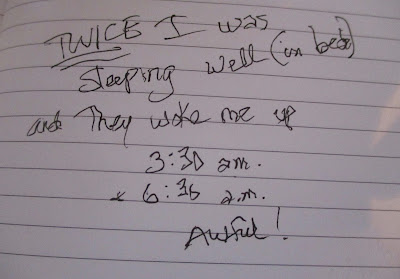 TWICE I was
sleeping well (in bed)
and They woke me up
3:30 a.m.
& 6:36 a.m.
Awful!